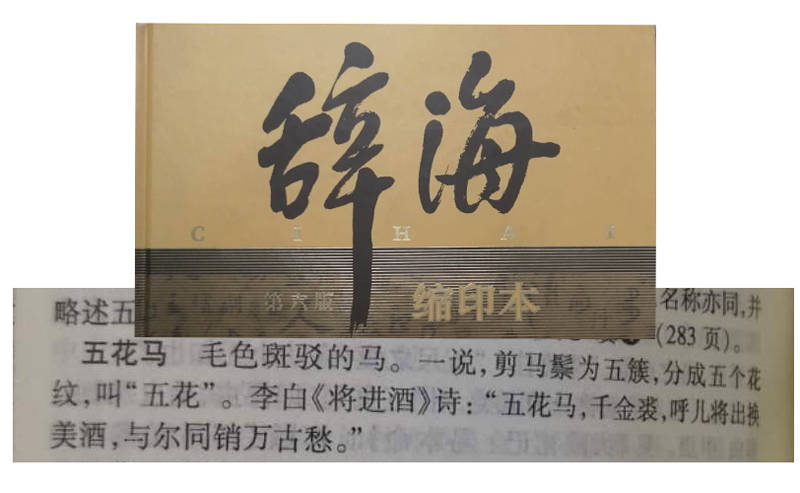 辞海
CIHAI
第六版 缩印本
略述五
名称亦同,并
(283页)。
五花马 毛色斑驳的马。一说,剪马鬃为五簇,分成五个花
纹,叫“五花”。李白《将进酒》诗:“五花马,千金裘,呼儿将出换
美酒,与尔同销万古愁。”